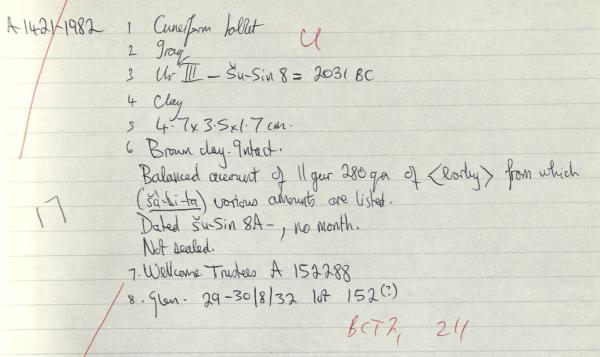 A 1421-1982 1 Cuneiform tablet U
2 Iraq
3 Ur III – Šu-Sin 8 = 2031 BC
4 Clay
5 4.7 x 3.5 x 1.7 cm.
6 Brown clay. Intact.
Balanced account of 11 gur 280 qa of <barley> from which
(šà-bi-ta) various amounts are listed.
Dated Šu-Sin 8A-, no month.
17
Not sealed.
7. Wellcome Trustees A 152288
8. Glen. 29-30/8/32 lot 152(?)
BCT 2, 24